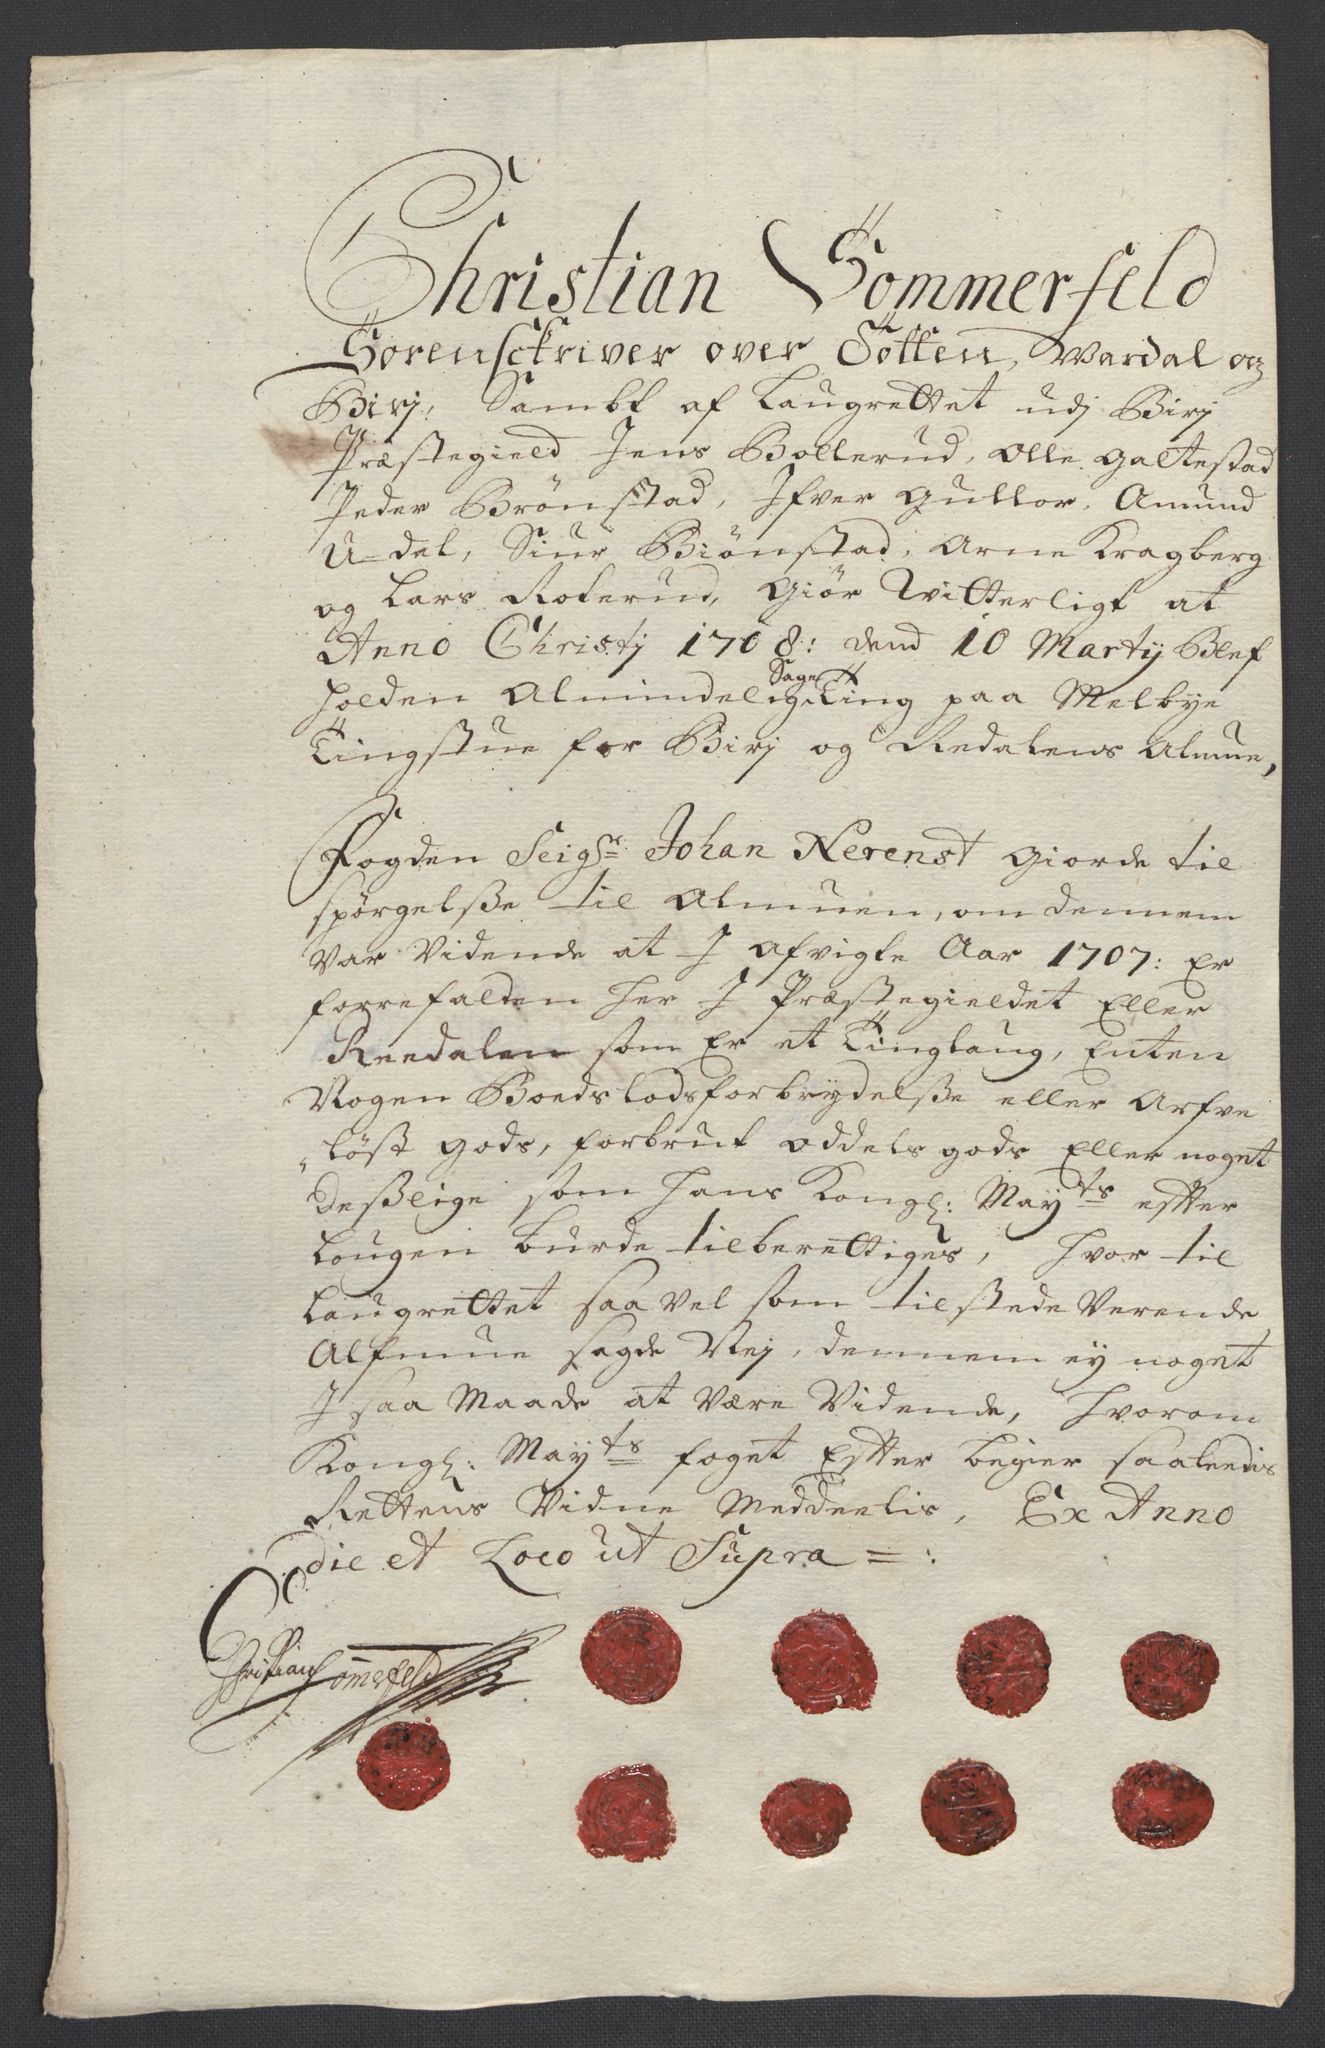 Christian Sommerfeld
Sorenschriver over Totten, Wardal og
Birj, Sambt af Laugrettet udj Birj
Præstegield Jens Bollerud, Olle Galtestad
Peder Brønstad, Ifver Gullor, Amund
U-del, Siur Biønstad, Arne Kragberg
og Lars Roterud, Giør Witterligt at
Anno Christj 1708: dend 10 Martij Blef
holden Almindelig Sage Ting paa Melbye
Tingstue for Birj og Redalens Almue,
Fogden Seigr Johan Nerenst giorde til
spørgelsse til Almuen, om dennem
var vidende at I afvigte Aar 1707: Er
forrefalden her I Præstegieldet Eller
Reedalen som Er et Tinglaug, Enten
Nogen Boedslodsforbrydelsse eller Arfve
løst gods, forbrut oddels gods Eller noget
desslige som hans Kongl: Mayts efter
Lougen burde tilberettiges, hvor til
Laugrettet saa vel som tilstede verende
Alfmue sagde Nej, dennem ej noget
I saa Maade at være vidende, hvorom
Kongl: Mayts foget Efter begier saaledis
Rettens Vidne Meddeelis, Ex Anno
die et Loco ut Supra =:
Christian Sommerfeld